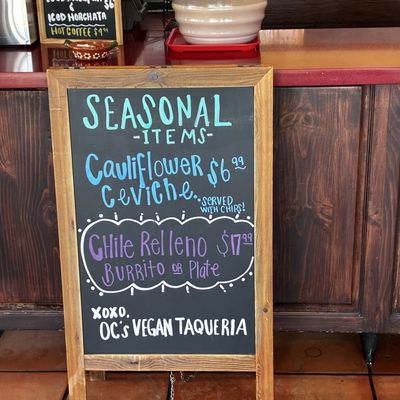 ICED HORCHATA
HOT COFFEE $4.99
SEASONAL
-ITEMS-
Cauliflower $6.99
Ceviche.
*SERVED
WITH CHIPS!
CHile Relleno $17.99
BURRITO OR PLATE
XOXO,
OC'S VEGAN TAQUERIA